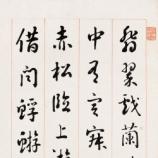 翡翠戲蘭
中有冥寂
赤松臨上遊
借問蜉蝣